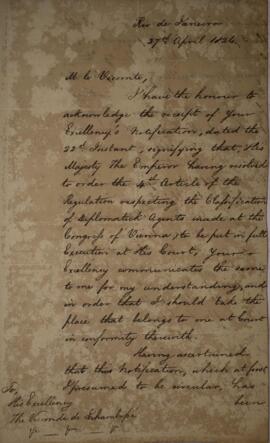 Rio de Janeiro
27th April 1826.
M. le Vicomte,
I have the honour to
acknowledge the receipt of Your
Excellency's Notification, dated the
22d Instant, signifying that, His
Majesty The Emperor having resolved
to order the 4th Article of the
Regulation respecting the Classification
of Diplomatick Agents made at the
Congress of Vienna, to be put in full
Execution at His Court, Your
Excellency communicates the same
to me for my understanding, and
in order that I should take the
place that belongs to me at Court
in conformity therewith.
Having ascertained
that this Notification, which at first
I presumed to be circular, has
been
To,
His Excellency
The Viconde de